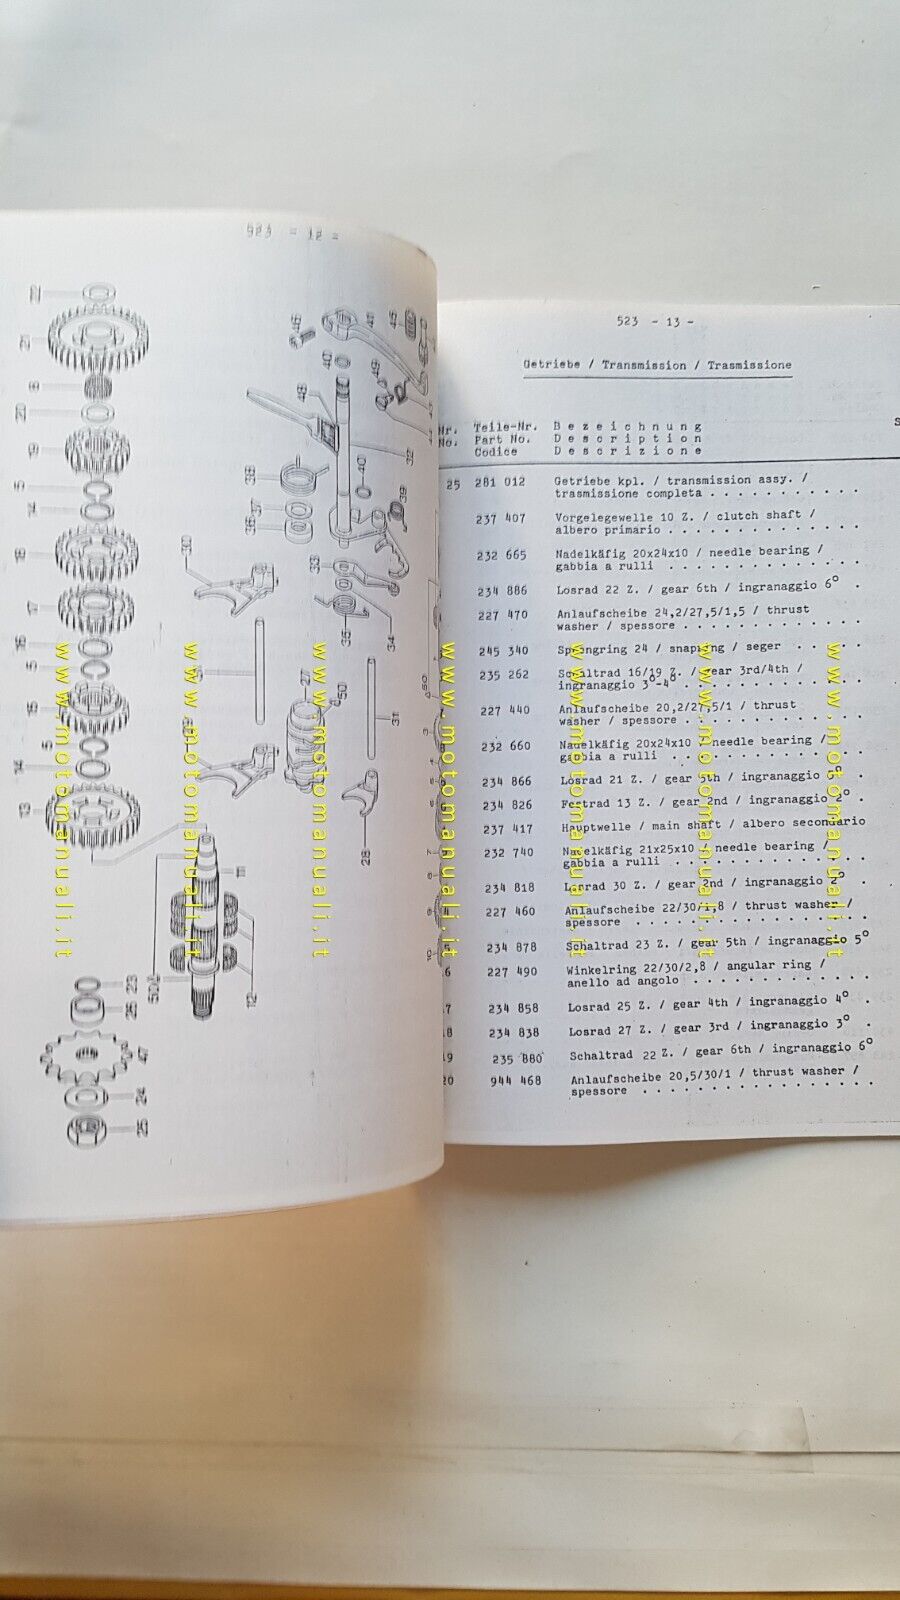 523 - 12 -
523 - 13 -
Getriebe / Transmission / Trasmissione
Nr. Teile-Nr. Bezeichnung
No. Part No. Description
Codice Descrizione
25 281 012 Getriebe kpl. / transmission assy. /
trasmissione completa
237 407 Vorgelegewelle 10 Z. / clutch shaft /
albero primario
232 665 Nadelkäfig 20x24x10 / needle bearing /
gabbia a rulli
234 886 Losrad 22 Z. / gear 6th / ingranaggio 6°
227 470 Anlaufscheibe 24,2/27,5/1,5 / thrust
washer / spessore
245 340 Sprengring 24 / snapring / seger
235 262 Schaltrad 16/19 Z. / gear 3rd/4th /
ingranaggio 3°-4°
227 440 Anlaufscheibe 20,2/27,5/1 / thrust
washer / spessore
232 660 Nadelkäfig 20x24x10 / needle bearing /
gabbia a rulli
234 866 Losrad 21 Z. / gear 5th / ingranaggio 5°
234 826 Festrad 13 Z. / gear 2nd / ingranaggio 2°
237 417 Hauptwelle / main shaft / albero secondario
232 740 Nadelkäfig 21x25x10 / needle bearing /
gabbia a rulli
234 818 Losrad 30 Z. / gear 2nd / ingranaggio 2°
227 460 Anlaufscheibe 22/30/1,8 / thrust washer /
spessore
234 878 Schaltrad 23 Z. / gear 5th / ingranaggio 5°
6 227 490 Winkelring 22/30/2,8 / angular ring /
anello ad angolo
7 234 858 Losrad 25 Z. / gear 4th / ingranaggio 4°
8 234 838 Losrad 27 Z. / gear 3rd / ingranaggio 3°
9 235 880 Schaltrad 22 Z. / gear 6th / ingranaggio 6°
20 944 468 Anlaufscheibe 20,5/30/1 / thrust washer /
spessore
www.motomanuali.it
www.motomanuali.it
www.motomanuali.it
www.motomanuali.it
www.motomanuali.it
www.motomanuali.it
www.motomanuali.it